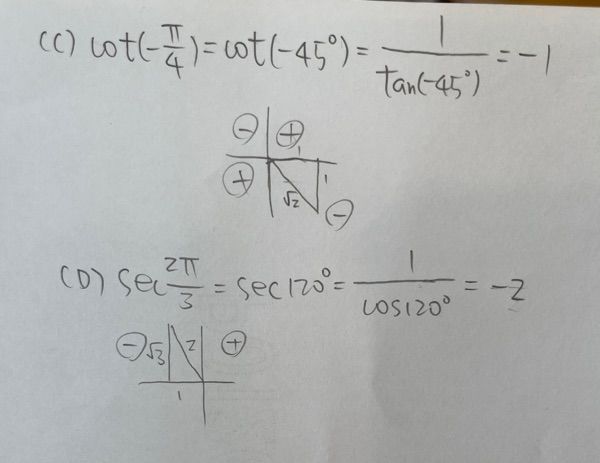 (C) cot(-π/4) = cot(-45°) = 1/tan(-45°) = -1
⊖ ⊕
1
⊕ 1
√2
⊖
(D) sec 2π/3 = sec120° = 1/cos120° = -2
⊖ √3 2 ⊕
1